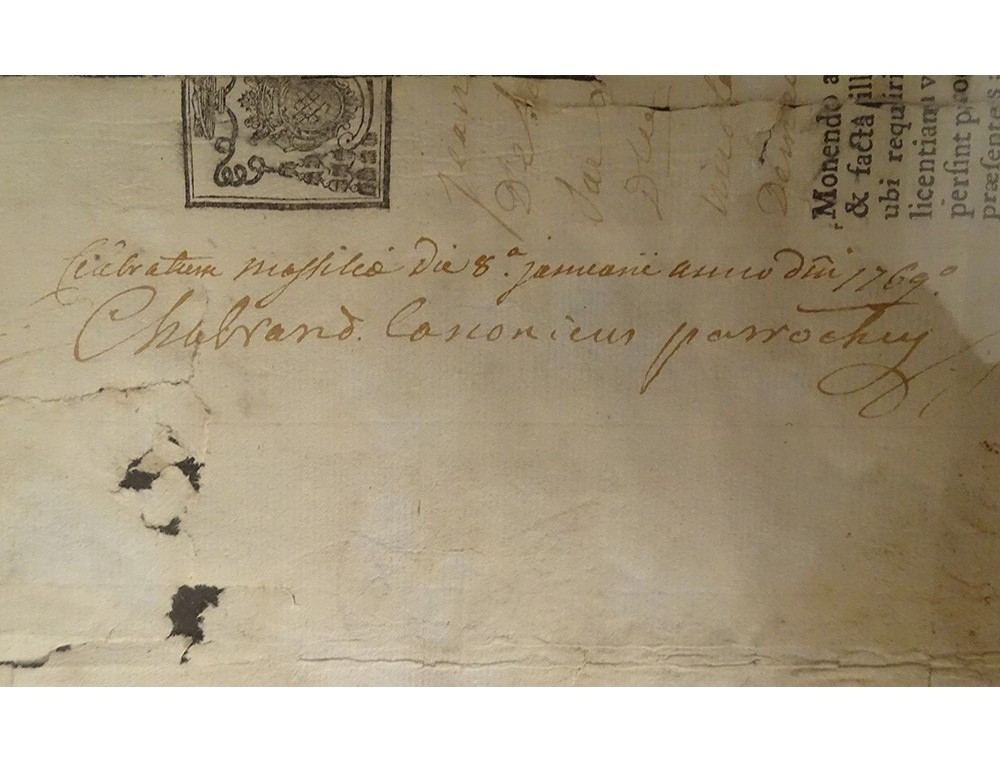 Celebratum massiliæ die 8.ª januarii anno dñi 1769.º
Chalvand. Canonicus parrochus
Monendo a
& facta ill
ubi requiri
licentiam v
persint pro
præsentes